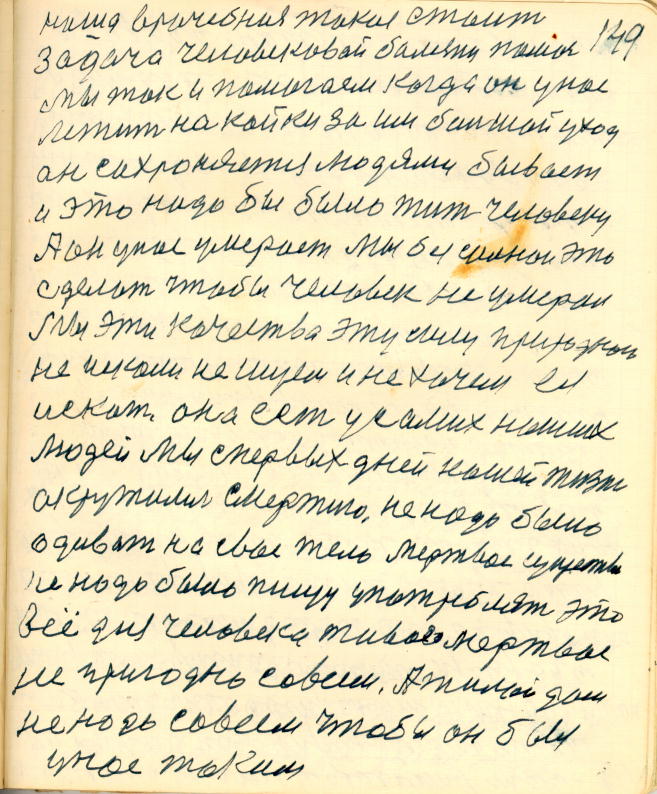 наша врачебная такая стоит 149
задача человековай балезни помоч
мы так и помогаем когда он у нас
лежит на койки за им большой уход
он сохроняется людями бывает
и это надо бы было жит человеку
А он у нас умерает мы бе силной это
сделат чтобы человек не умерал
Мы эти качества эту силу природы
не искали не ищем и не хочем ея
искат. она ест у самих наших
людей мы с первых дней нашей жизни
окружилис смертию, не надо было
одиват на свое тело мертвое существо
не надо было пищу употреблят это
всё для человека живого мертвое
не пригодно совсем. А жилой дом
не надо совсем чтобы он был
у нас таким